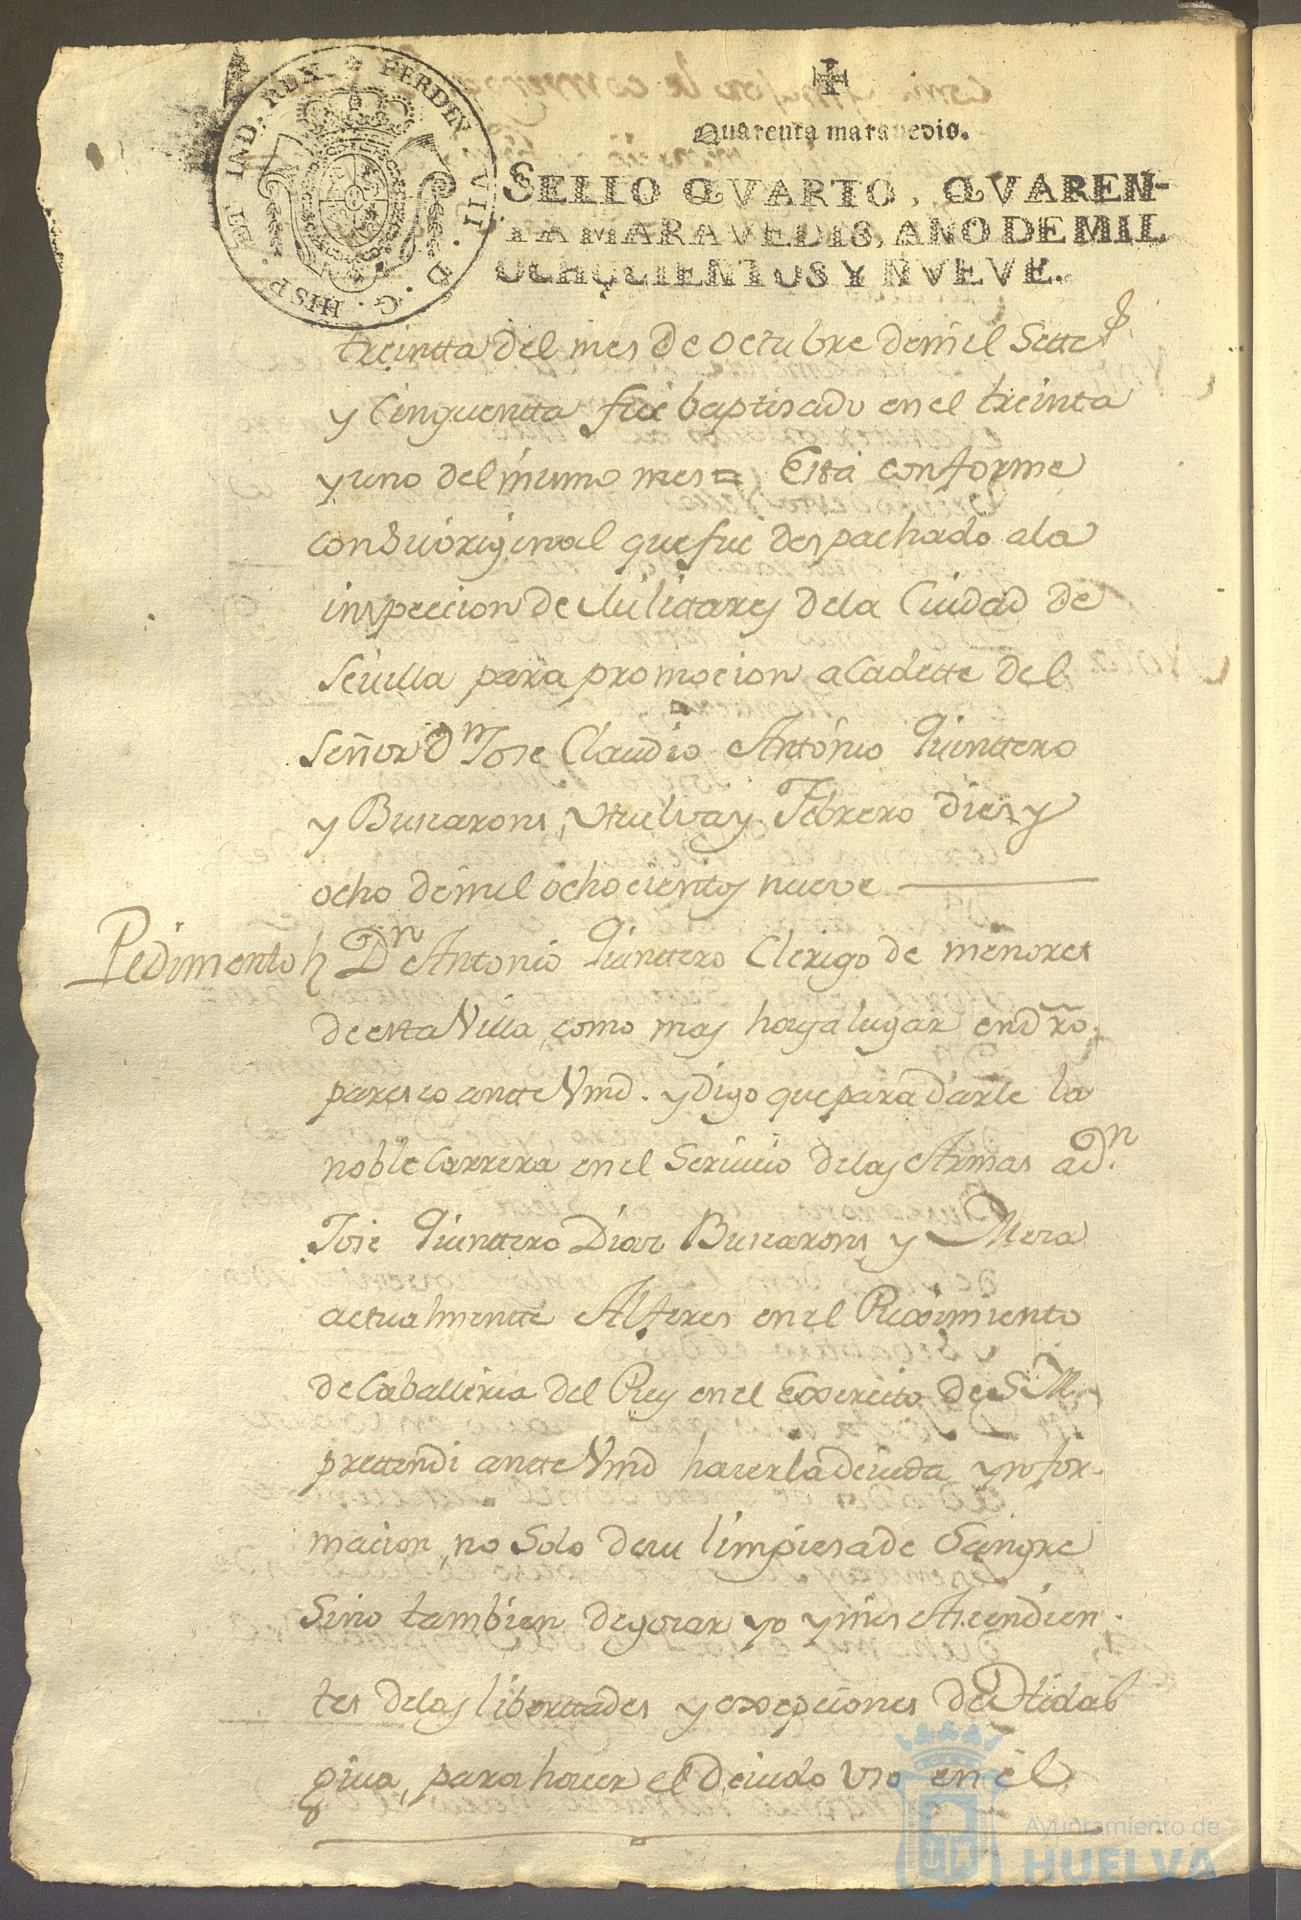 HISP. ET IND. REX. FERDIN VII D. G.
Quarenta maravedis.
SELLO QVARTO, QVAREN-
TA MARAVEDIS, AÑO DE MIL
OCHOCIENTOS Y NVEVE.
treintta del mes de Octubre demil Sette
y Cinquentta fue baptisado en el treinta
y uno del mismo mes = Está conforme
con su original que fue despachado ala
inspeccion de Militares dela Ciudad de
Sevilla para promocion a Cadette del
Señor Dn Jose Claudio António Quinttero
y Buscarons, Huelva y Febrero dies y
ocho demil ochocientos nueve
Pedimento Dn Antonio Quinttero Clerigo de menores
de esta Villa, como mas haya lugar en dro.
paresco antte Vmd. y Digo que para darle la
noble Carrera en el Servicio delas Armas a Dn.
Jose Quinttero Díaz Buscarons y Mora
actualmentte Alferes en el Reximiento
de Caballeria del Rey en el Exercito de S.M.
prettendi antte Vmd hacer la devida ynfor-
macion, no Solo desu limpiesa de Sangre
Sino tambien degosar yo y mis Ascendien-
tes delas liberttades y exepciones de Hidal
guia, para hacer el Devido Uso en el
Ayuntamiento de
HUELVA